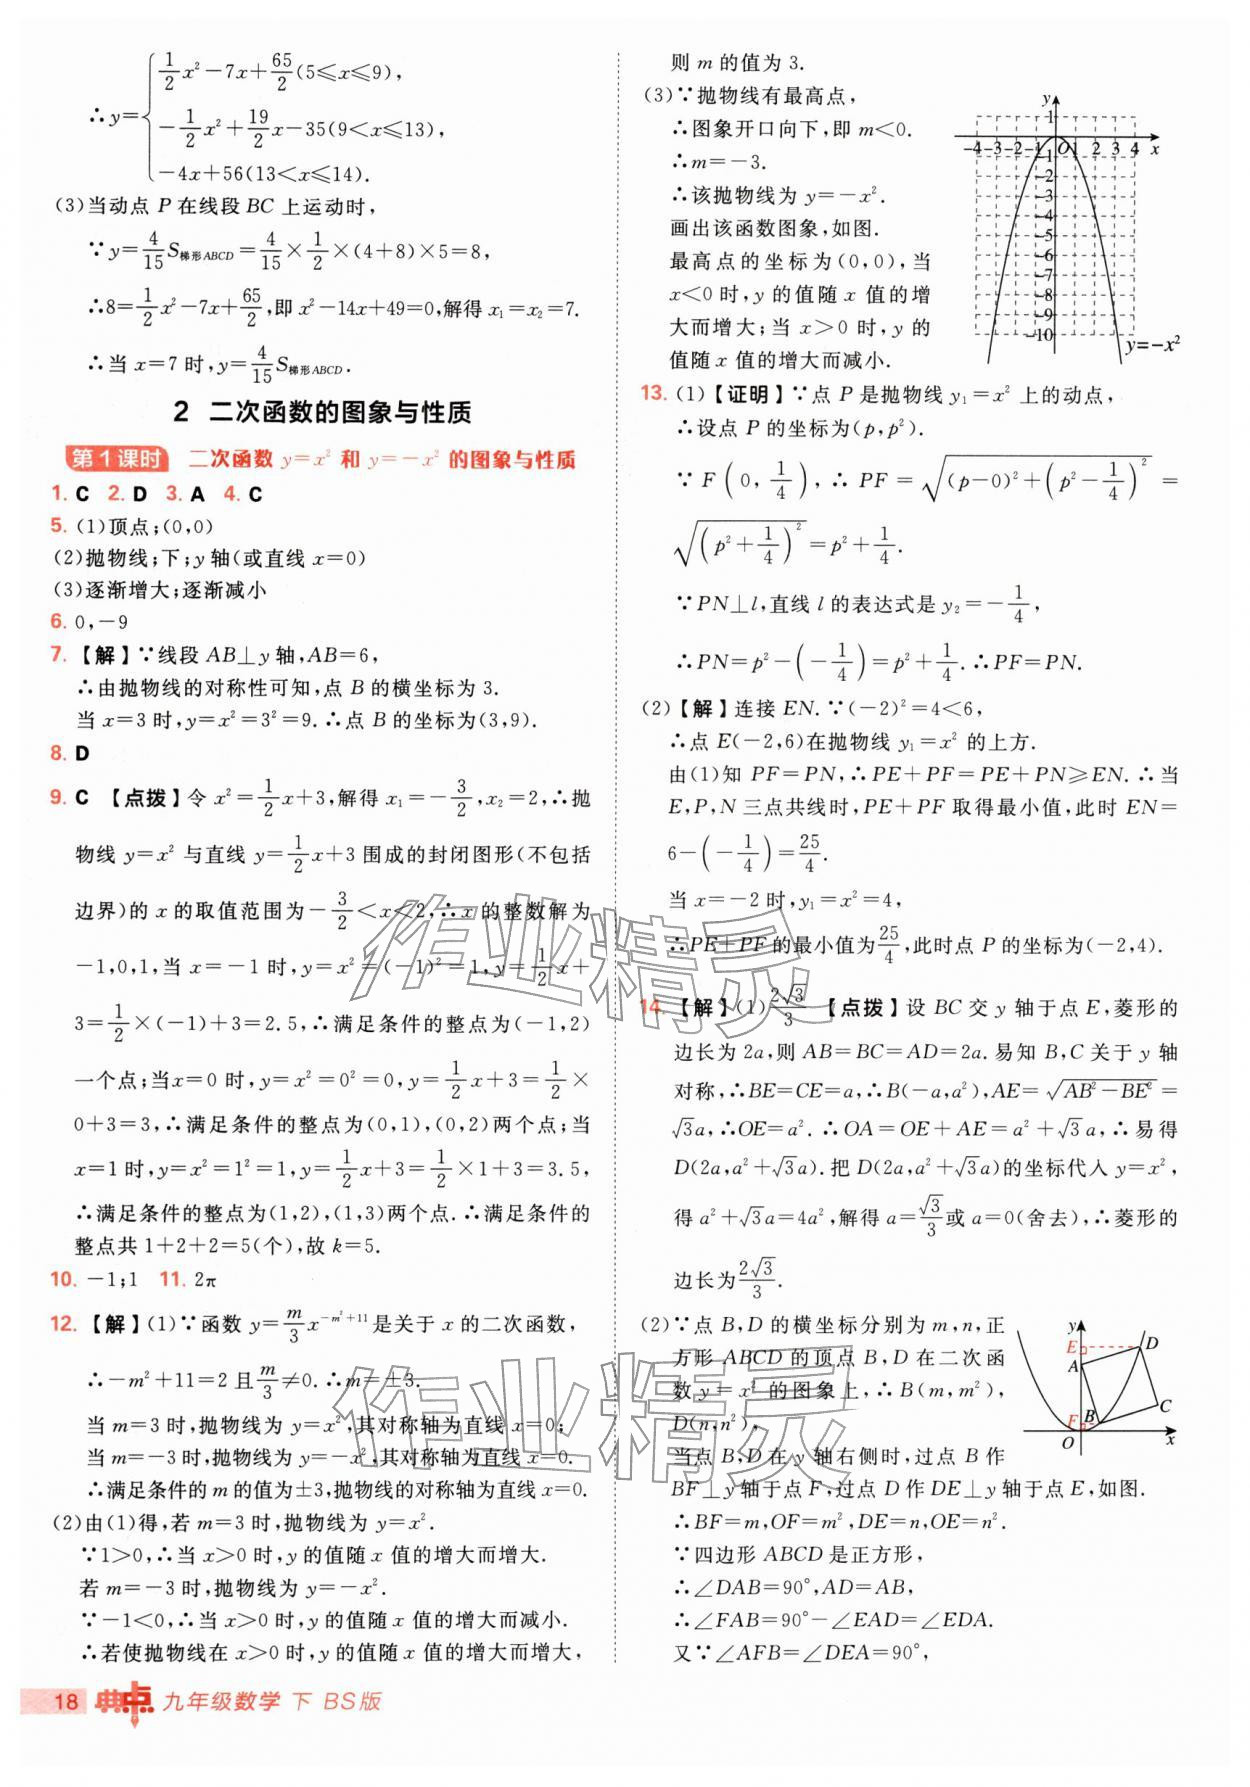 ∴y={ 1/2 x²-7x+65/2(5≤x≤9),
-1/2 x²+19/2 x-35(9<x≤13),
-4x+56(13<x≤14).
(3)当动点 P 在线段 BC 上运动时,
∵y=4/15 S梯形ABCD=4/15×1/2×(4+8)×5=8,
∴8=1/2 x²-7x+65/2,即 x²-14x+49=0,解得 x₁=x₂=7.
∴当 x=7 时,y=4/15 S梯形ABCD.
2 二次函数的图象与性质
第1课时 二次函数 y=x² 和 y=-x² 的图象与性质
1. C 2. D 3. A 4. C
5. (1)顶点;(0,0)
(2)抛物线;下;y 轴(或直线 x=0)
(3)逐渐增大;逐渐减小
6. 0,-9
7. 【解】∵线段 AB⊥y 轴,AB=6,
∴由抛物线的对称性可知,点 B 的横坐标为 3.
当 x=3 时,y=x²=3²=9.∴点 B 的坐标为(3,9).
8. D
9. C 【点拨】令 x²=1/2 x+3,解得 x₁=-3/2,x₂=2,∴抛
物线 y=x² 与直线 y=1/2 x+3 围成的封闭图形(不包括
边界)的 x 的取值范围为-3/2<x<2,∴x 的整数解为
-1,0,1,当 x=-1 时,y=x²=(-1)²=1,y=1/2 x+
3=1/2×(-1)+3=2.5,∴满足条件的整点为(-1,2)
一个点;当x=0 时,y=x²=0²=0,y=1/2 x+3=1/2×
0+3=3,∴满足条件的整点为(0,1),(0,2)两个点;当
x=1 时,y=x²=1²=1,y=1/2 x+3=1/2×1+3=3.5,
∴满足条件的整点为(1,2),(1,3)两个点.∴满足条件的
整点共 1+2+2=5(个),故 k=5.
10. -1;1 11. 2π
12. 【解】(1)∵函数 y=m/3 x^(-m²+11)是关于 x 的二次函数,
∴-m²+11=2 且 m/3≠0.∴m=±3.
当 m=3 时,抛物线为 y=x²,其对称轴为直线 x=0;
当 m=-3 时,抛物线为 y=-x²,其对称轴为直线 x=0.
∴满足条件的 m 的值为±3,抛物线的对称轴为直线 x=0.
(2)由(1)得,若 m=3 时,抛物线为 y=x².
∵1>0,∴当 x>0 时,y 的值随 x 值的增大而增大.
若 m=-3 时,抛物线为 y=-x².
∵-1<0,∴当 x>0 时,y 的值随 x 值的增大而减小.
∴若使抛物线在 x>0 时,y 的值随 x 值的增大而增大,
18 典中点 九年级数学 下 BS版
则 m 的值为 3.
(3)∵抛物线有最高点,
∴图象开口向下,即 m<0.
∴m=-3.
∴该抛物线为 y=-x².
画出该函数图象,如图.
最高点的坐标为(0,0),当
x<0 时,y 的值随 x 值的增
大而增大;当 x>0 时,y 的
值随 x 值的增大而减小.
y
1
-4 -3 -2 -1 O 1 2 3 4 x
-1
-2
-3
-4
-5
-6
-7
-8
-9
-10
y=-x²
13. (1)【证明】∵点 P 是抛物线 y₁=x² 上的动点,
∴设点 P 的坐标为(p,p²).
∵F(0,1/4),∴PF=√((p-0)²+(p²-1/4)²)=
√((p²+1/4)²)=p²+1/4.
∵PN⊥l,直线 l 的表达式是 y₂=-1/4,
∴PN=p²-(-1/4)=p²+1/4.∴PF=PN.
(2)【解】连接 EN.∵(-2)²=4<6,
∴点 E(-2,6)在抛物线 y₁=x² 的上方.
由(1)知 PF=PN,∴PE+PF=PE+PN≥EN.∴当
E,P,N 三点共线时,PE+PF 取得最小值,此时 EN=
6-(-1/4)=25/4.
当 x=-2 时,y₁=x²=4,
∴PE+PF 的最小值为25/4,此时点 P 的坐标为(-2,4).
14. 【解】(1)2√3/3 【点拨】设 BC 交 y 轴于点 E,菱形的
边长为 2a,则 AB=BC=AD=2a.易知 B,C 关于 y 轴
对称,∴BE=CE=a,∴B(-a,a²),AE=√(AB²-BE²)=
√3a,∴OE=a².∴OA=OE+AE=a²+√3a,∴易得
D(2a,a²+√3a).把 D(2a,a²+√3a)的坐标代入 y=x²,
得 a²+√3a=4a²,解得 a=√3/3或 a=0(舍去),∴菱形的
边长为2√3/3.
(2)∵点 B,D 的横坐标分别为 m,n,正
方形 ABCD 的顶点 B,D 在二次函
数 y=x² 的图象上,∴B(m,m²),
D(n,n²),
当点 B,D 在 y 轴右侧时,过点 B 作
BF⊥y 轴于点 F,过点 D 作 DE⊥y 轴于点 E,如图.
∴BF=m,OF=m²,DE=n,OE=n².
∵四边形 ABCD 是正方形,
∴∠DAB=90°,AD=AB,
∴∠FAB=90°-∠EAD=∠EDA.
又∵∠AFB=∠DEA=90°,
y
E D
A
C
F B
O x
作业精灵
作业精灵